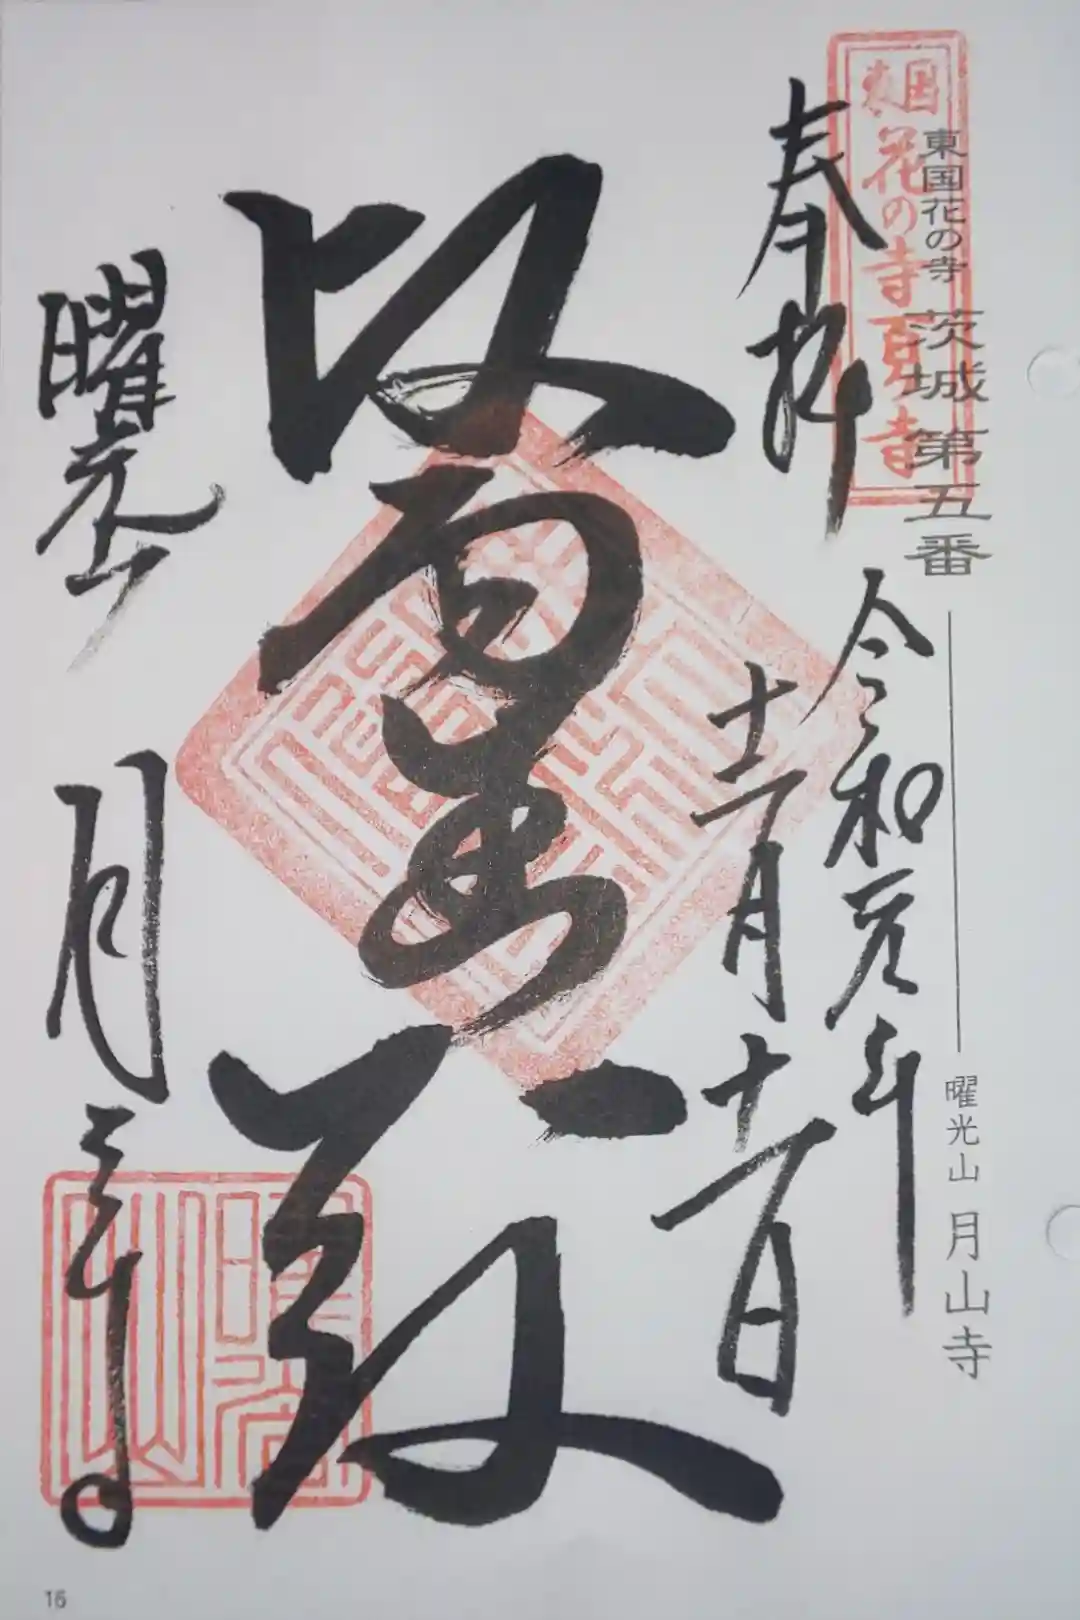 東国花の寺 茨城 第五番
曜光山 月山寺
東国花の寺百ヶ寺
奉拝
令和元年
十一月十一日
曜光山 月山寺